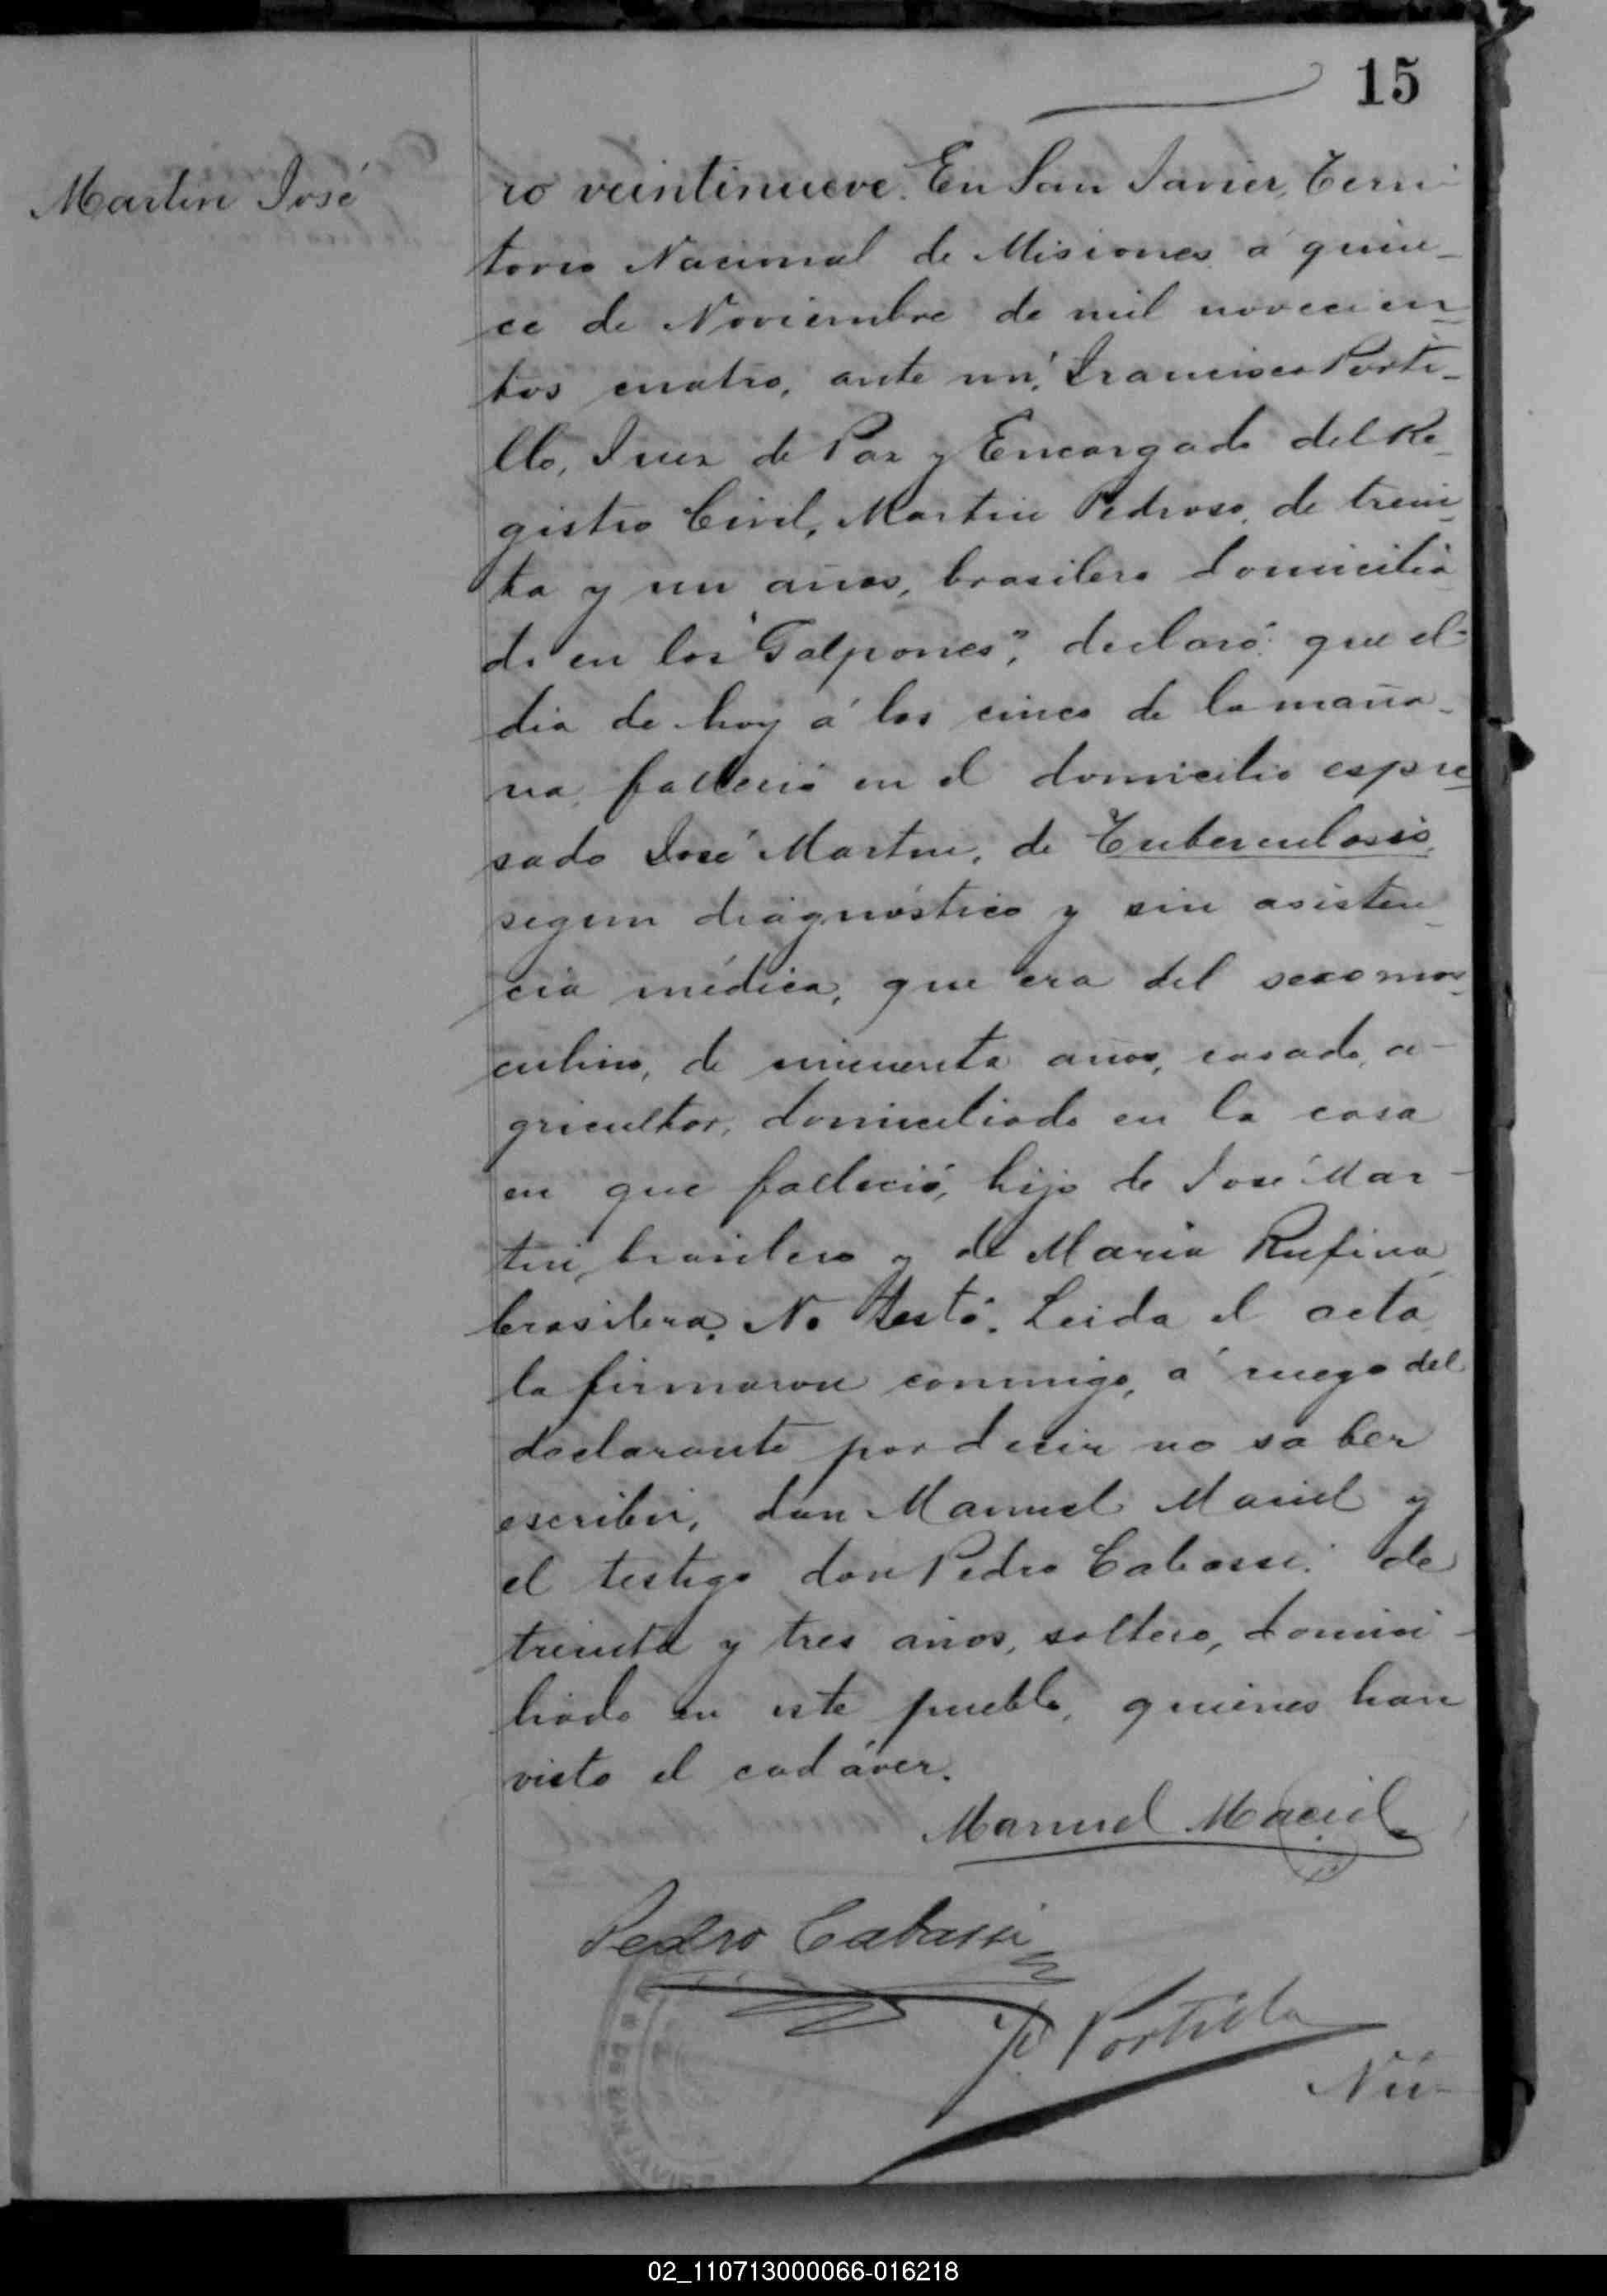 15
Martin José
ro veintinueve. En San Javier, Terri-
torio Nacional de Misiones á quin-
ce de Noviembre de mil novecien-
tos cuatro, ante mí, Francisco Porti-
llo, Juez de Paz y Encargado del Re-
gistro Civil, Martin Pedroso, de trein-
ta y un años, brasilero domicilia
do en los "Galpones", declaró: que el
dia de hoy á las cinco de la maña-
na, falleció en el domicilio espre-
sado José Martin, de Tuberculosis,
segun diagnóstico y sin asisten-
cia médica, que era del sexo mas-
culino, de cincuenta años, casado, a-
gricultor, domiciliado en la casa
en que falleció, hijo de José Mar-
tin, brasilero y de Maria Rufina,
brasilera. No testó. Leida el acta
la firmaron conmigo, á ruego del
declarante por decir no saber
escribir, don Manuel Maciel y
el testigo don Pedro Cabassi, de
treinta y tres años, soltero, domici-
liado en este pueblo, quienes han
visto el cadáver.
Manuel Maciel
Pedro Cabassi
F. Portillo
Nú-
02_110713000066-016218